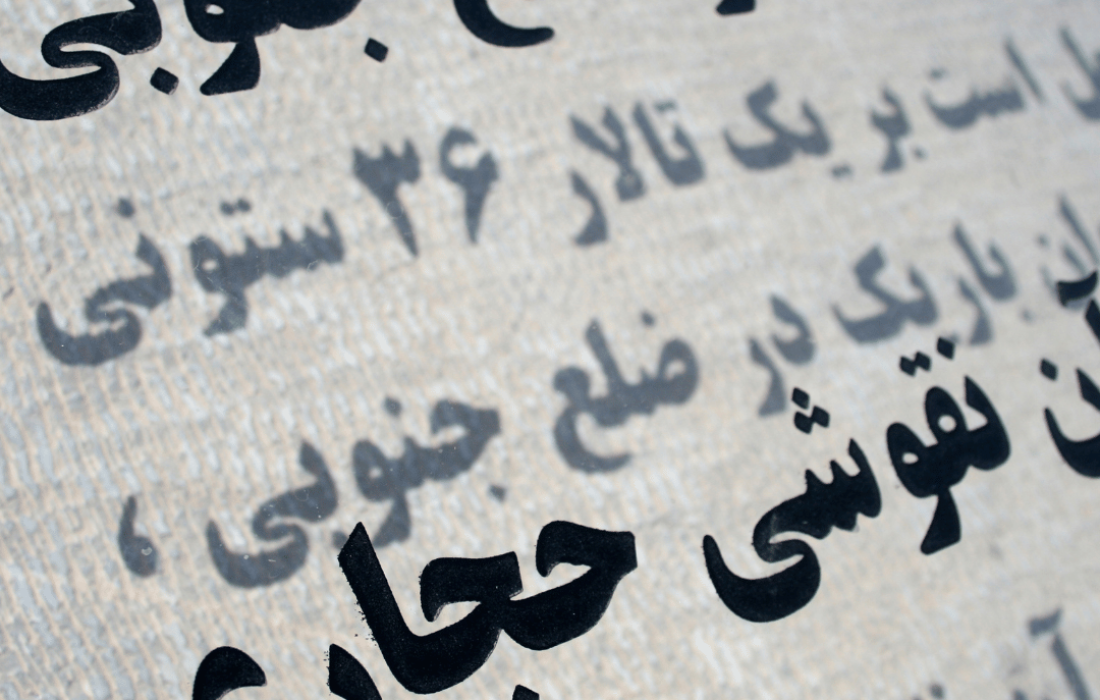 جنوبی
است بر یک تالار ۳۶ ستونی
باریک در ضلع جنوبی ،
نقوشی